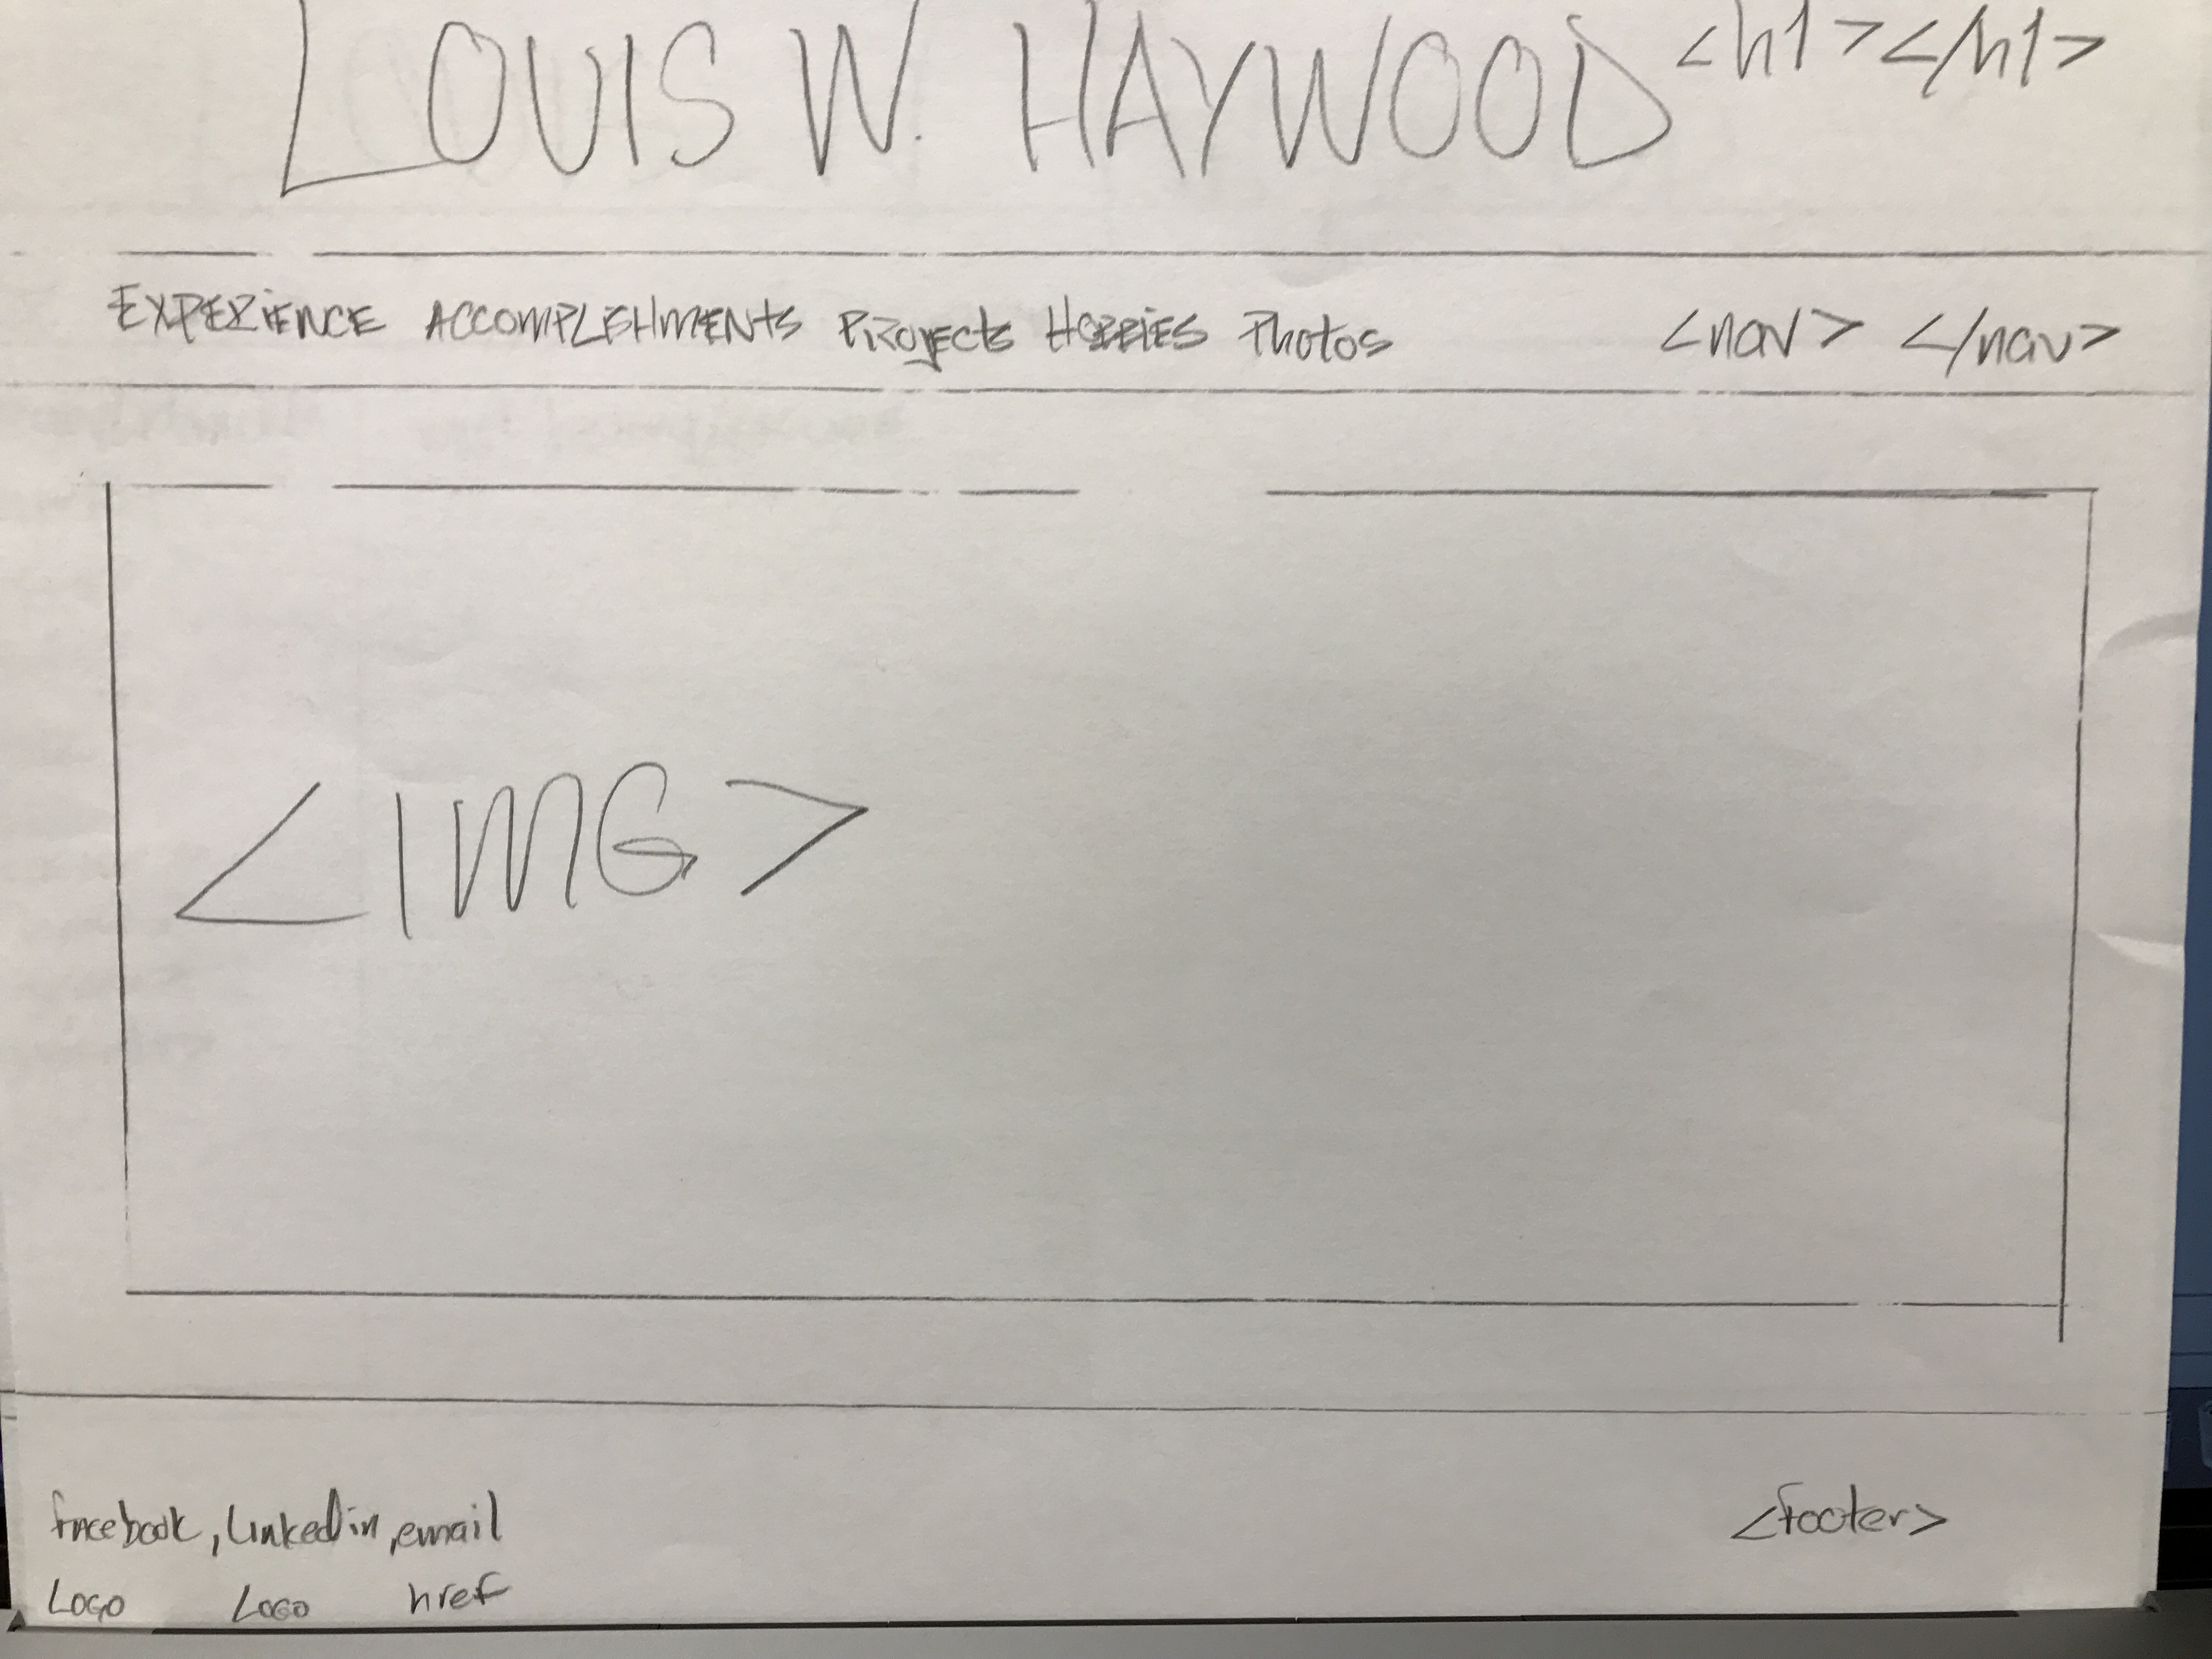 LOUIS W. HAYWOOD <h1></h1>
EXPERIENCE ACCOMPLISHMENTS PROJECTS HOBBIES Photos <nav> </nav>
<IMG>
facebook, Linkedin, email <footer>
LOGO LOGO href